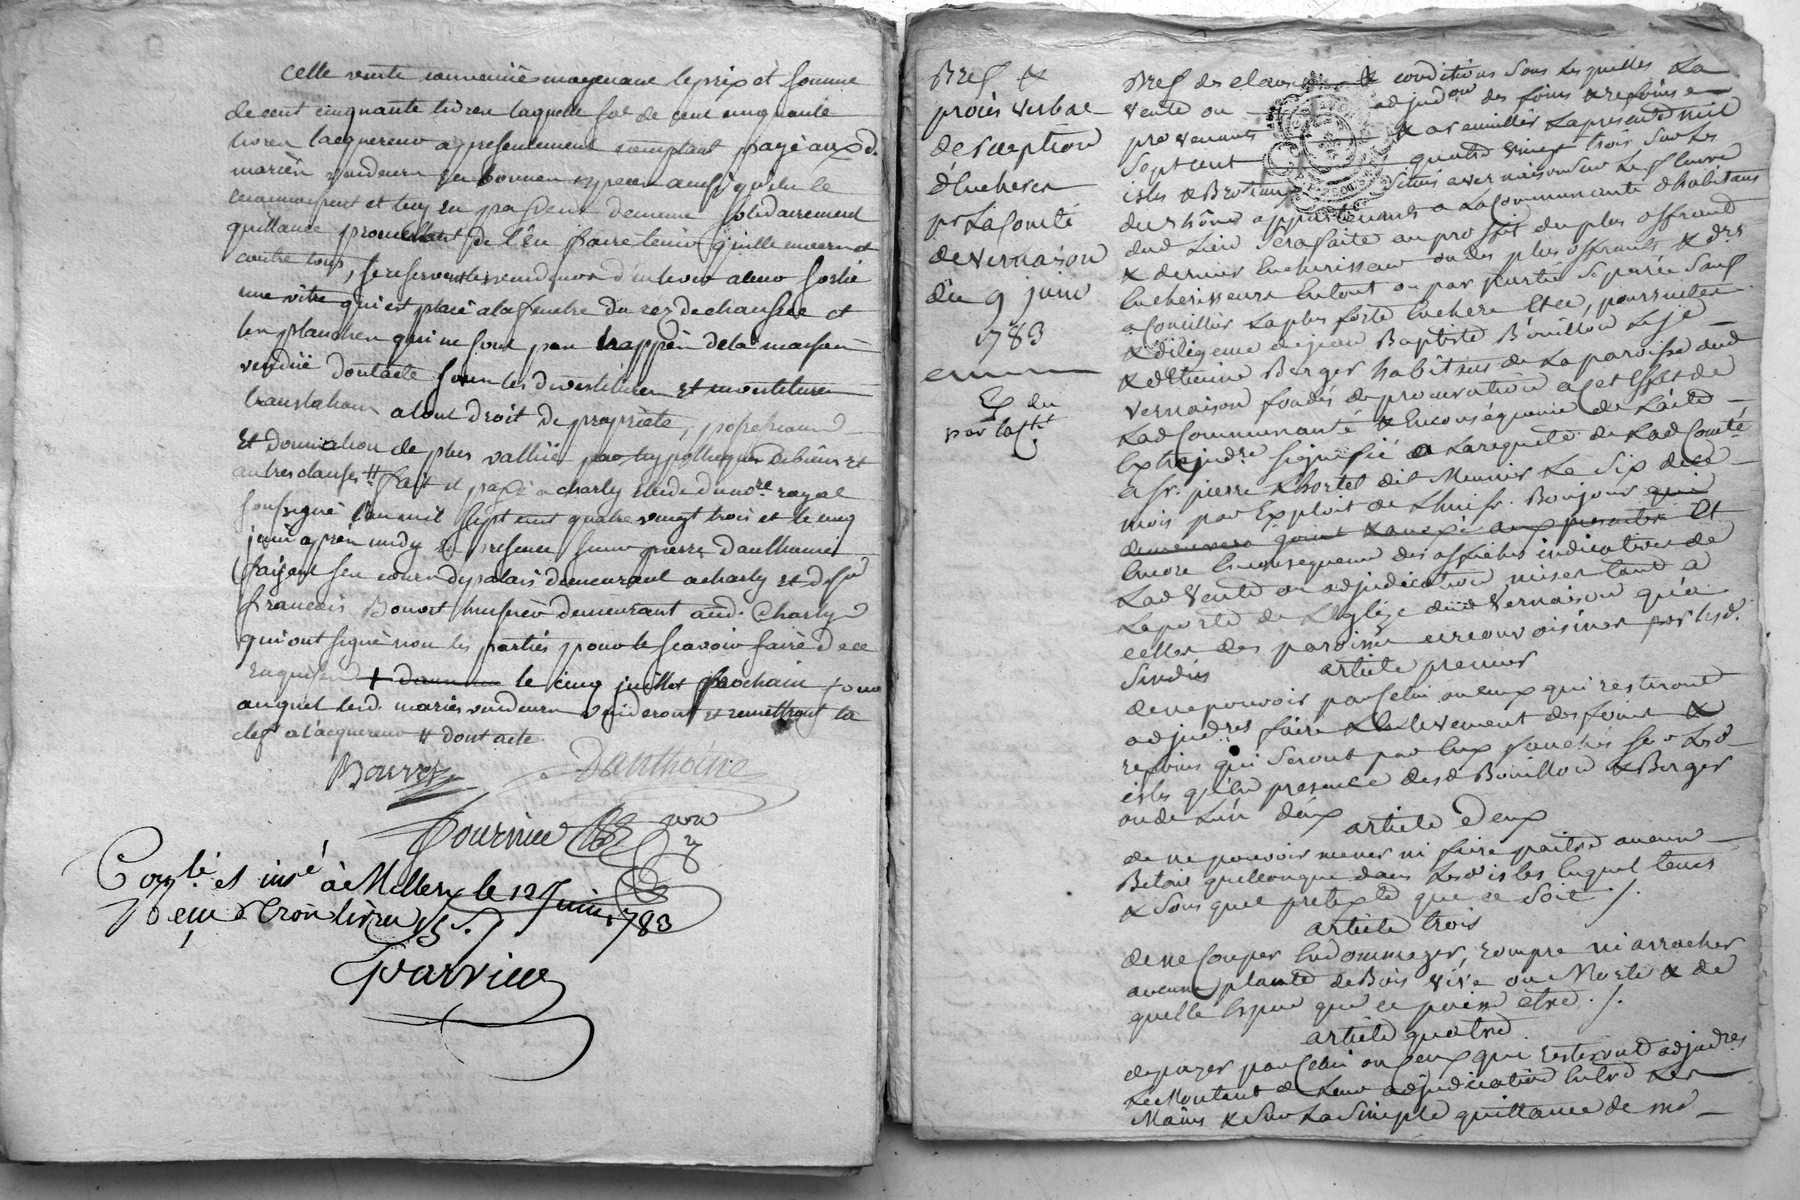 Cette vente convenüe moyenant le prix et somme
de cent cinquante livres laquelle sôe de cent cinquante
livres lacquereur a presentement comptant payé auxd.
mariés vendeurs en bonnes especes ainsi qu'ils le
et en passent demême solidairement
quittance promettant de l'en faire tenir quitte envers et
contre tous, se reservent les vendeurs d'enlever
une vitre qui est placé a la fenetre du rez de chaussée et
les planches qui ne sont pas trappés de la maison
vendüe dont acte sous les divestitures et investitures
translation a tout droit de proprieté, possession
et donnation de plus vallüe par hypotheques de biens et
autres clauses # fait et passé a charly etude du no.re royal
soussigné l'an mil sept cent quatre vingt trois et le cinq
juin après midy en presence sieur pierre Danthoine
faisant ses cours de palais demeurant a charly et de sr
francois Bouvet huissier demeurant aud. Charly
qui ont signé non les parties pour ne scavoir faire de ce
enquises + le cinq juillet prochain jour
auquel lesd. mariés vendeurs vuideront et remettront la
clef a l'acquereur # dont acte
Danthoine
Con.lé et insé à Millery le 12 Juin 1783
Reçu trois livres 15 s.
Bref &
procès verbal
de reception
d'Encheres
pr La Comté
de Vernaison
du 9 juin
1783
Ex du
par la Cté
Bref des clauses & conditions sous Lesquelles La
vente ou adjudon des foins & regains
provenants & a recuillir La presente mil
sept cent quatre vingt trois sur les
isles & Broteaux situés a vernaison sur Le fleuve
du rhône appartenants a La Communauté d'habitans
dud Lieu sera faite au profit du plus offrand
& dernier Encherisseur ou des plus offrants & drs
Encherisseurs En tout ou par partie separée sauf
a Conciller La plus forte Enchere Et ce, poursuites
& diligence de jean Baptiste Bouillon Le je
& d'Etienne Berger habitans de La paroisse dud
vernaison fondés de procuration a cet Effet de
Lad Communauté & En conséquence de L'acte
Extrajudre signifié a La requete de Lad Comté
a sr. pierre Chortet dit Meunier Le six de ce
mois par Exploit de L'huisr. Bonjour qui
demeurera joint & anexé aux presentes Et
Encore En conséquence des affiches indicatives de
Lad vente ou adjudication mises tant a
La porte de L'Eglize dud Vernaison qu'a
celles des paroisses circonvoisines par lesd.
Sindics
article premier
de ne pouvoir par Celui ou ceux qui resteront
adjudres faire L'Enlevement des foins &
regains qui seront par Eux fauchés sur Lesd
isles qu'En presence desd Bouillon & Berger
ou de L'un d'eux
article deux
de ne pouvoir mener ni faire paitre aucun
Betail quelconque dans Lesd isles En quel tems
& sous quel pretexte que ce soit /.
article trois
de ne Couper Endommager, rompre ni arracher
aucune plante de Bois vive ou Morte & de
quelle Espece que ce puisse etre ./.
article quatre
de payer par Celui ou Ceux qui resteront adjudres
Le Montant de Leur adjudication Entre Les
Mains & sur La simple quittance de me